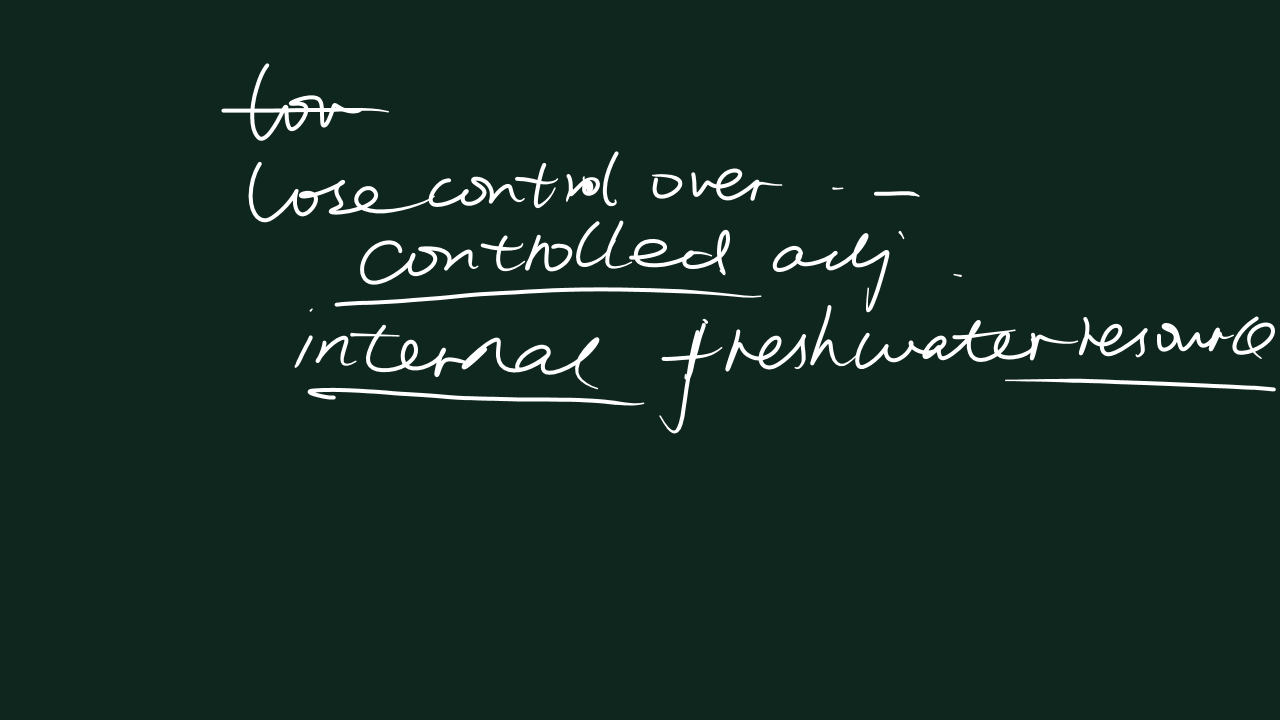 lose control over ...
controlled adj.
internal freshwater resource